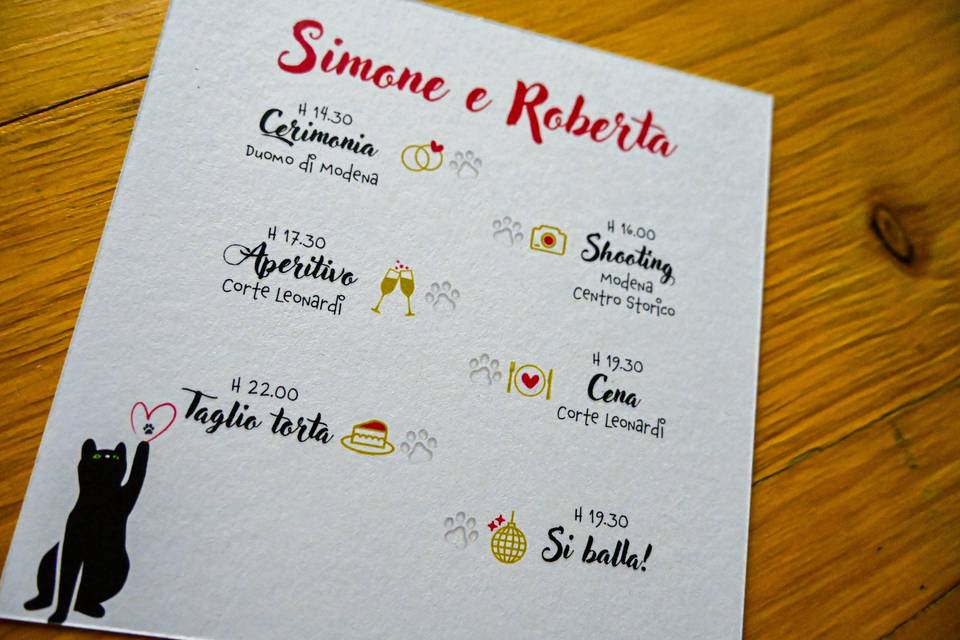 Simone e Roberta
H 14.30
Cerimonia
Duomo di Modena
H 16.00
Shooting
Modena
Centro Storico
H 17.30
Aperitivo
Corte Leonardi
H 19.30
Cena
Corte Leonardi
H 22.00
Taglio torta
H 19.30
Si balla!